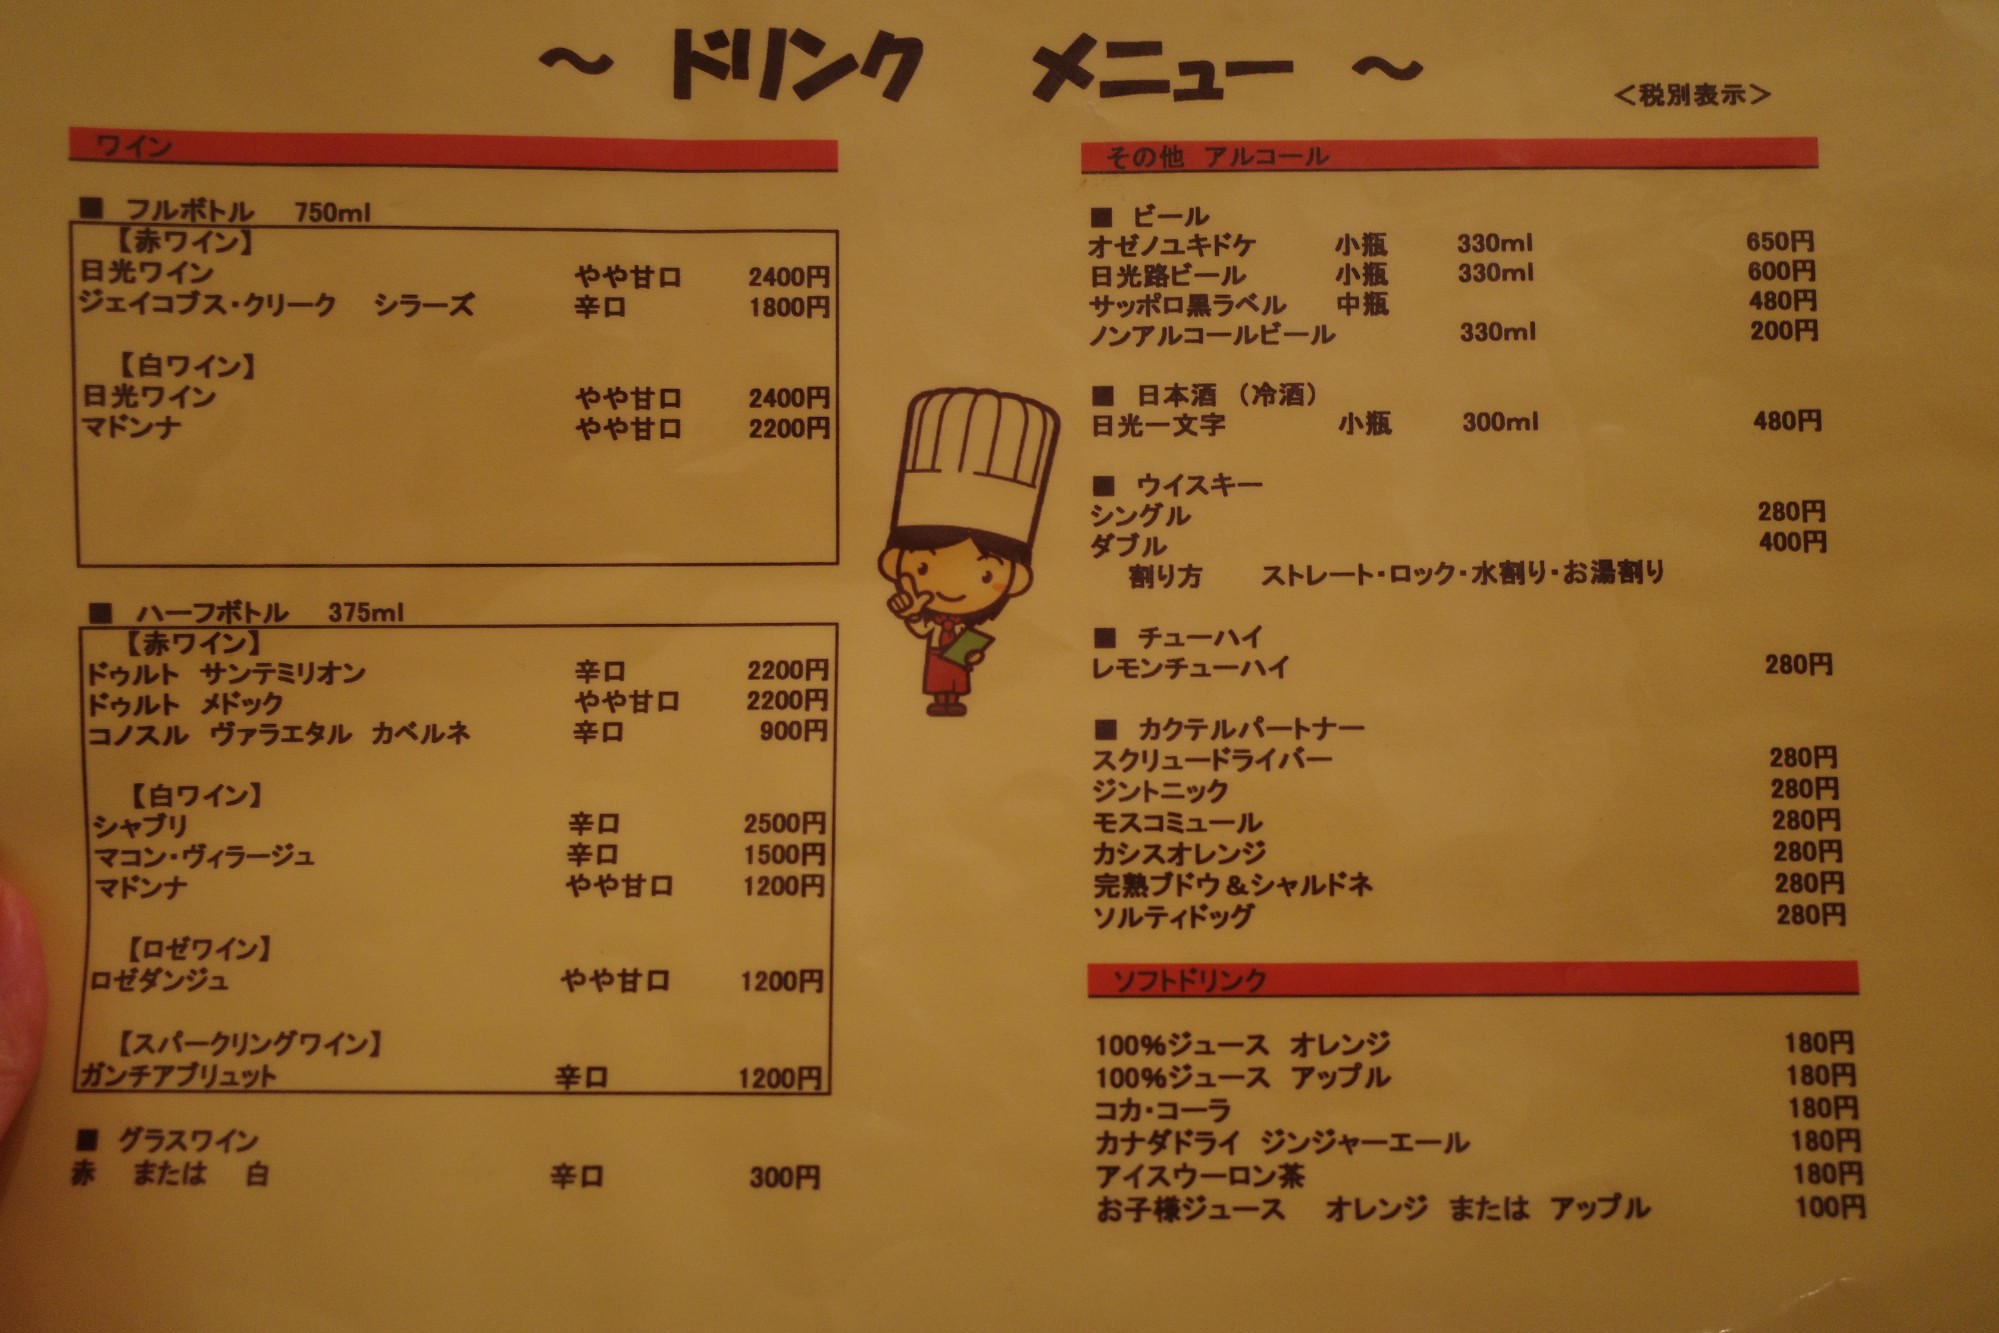 ～ ドリンク メニュー ～
＜税別表示＞
ワイン
■ フルボトル 750ml
【赤ワイン】
日光ワイン やや甘口 2400円
ジェイコブス・クリーク シラーズ 辛口 1800円
【白ワイン】
日光ワイン やや甘口 2400円
マドンナ やや甘口 2200円
■ ハーフボトル 375ml
【赤ワイン】
ドゥルト サンテミリオン 辛口 2200円
ドゥルト メドック やや甘口 2200円
コノスル ヴァラエタル カベルネ 辛口 900円
【白ワイン】
シャブリ 辛口 2500円
マコン・ヴィラージュ 辛口 1500円
マドンナ やや甘口 1200円
【ロゼワイン】
ロゼダンジュ やや甘口 1200円
【スパークリングワイン】
ガンチアブリュット 辛口 1200円
■ グラスワイン
赤 または 白 辛口 300円
その他 アルコール
■ ビール
オゼノユキドケ 小瓶 330ml 650円
日光路ビール 小瓶 330ml 600円
サッポロ黒ラベル 中瓶 480円
ノンアルコールビール 330ml 200円
■ 日本酒 （冷酒）
日光一文字 小瓶 300ml 480円
■ ウイスキー
シングル 280円
ダブル 400円
割り方 ストレート・ロック・水割り・お湯割り
■ チューハイ
レモンチューハイ 280円
■ カクテルパートナー
スクリュードライバー 280円
ジントニック 280円
モスコミュール 280円
カシスオレンジ 280円
完熟ブドウ＆シャルドネ 280円
ソルティドッグ 280円
ソフトドリンク
100%ジュース オレンジ 180円
100%ジュース アップル 180円
コカ・コーラ 180円
カナダドライ ジンジャーエール 180円
アイスウーロン茶 180円
お子様ジュース オレンジ または アップル 100円